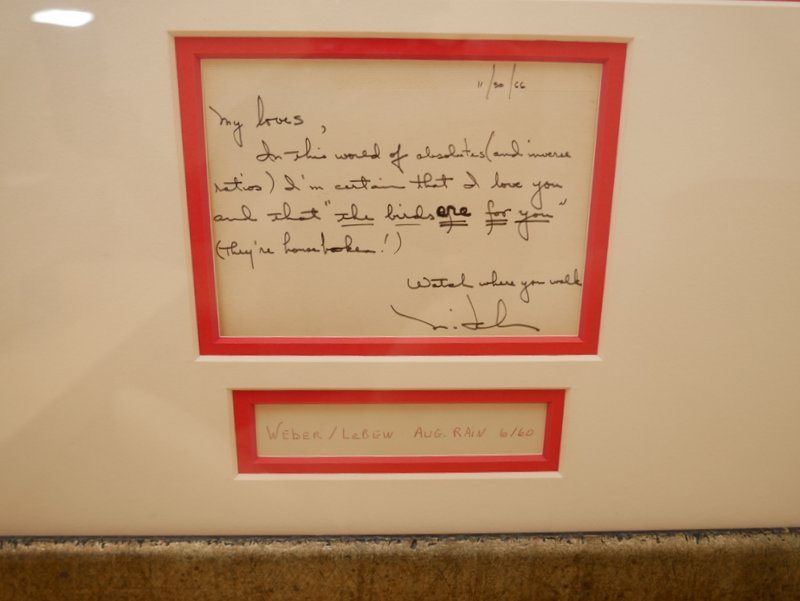 11/30/66
My loves,
In this world of absolutes (and inverse
ratios) I'm certain that I love you
and that "the birds are for you"
(they're housebroken!)
Watch where you walk
WEBER/ AUG. RAIN 6/60